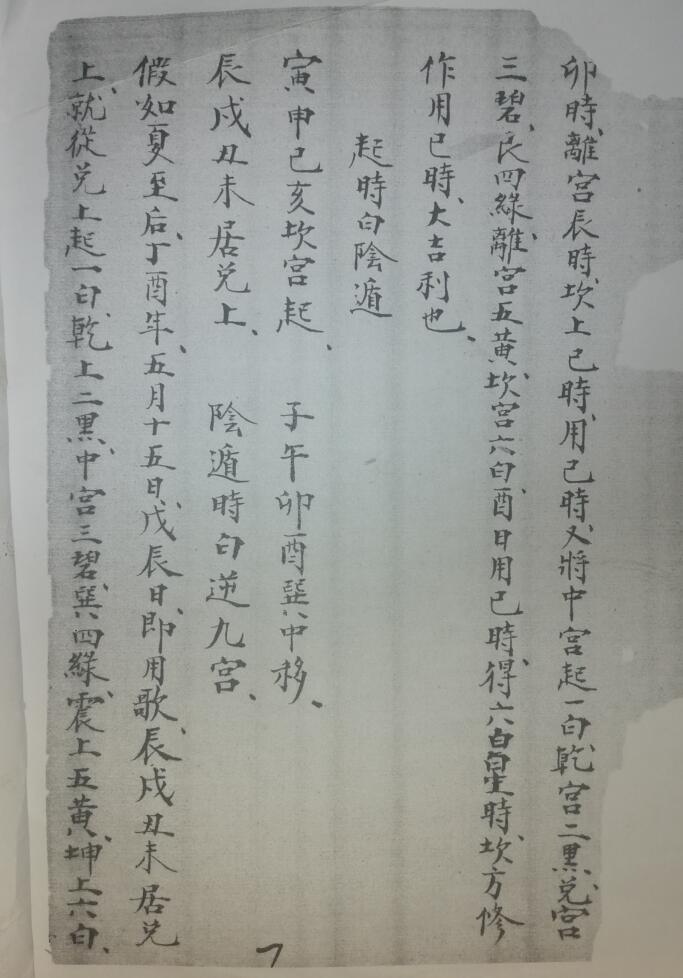 卯時、離宮辰時、坎上巳時、用巳時、又將中宮起一白、乾宮二黑、兌宮
三碧、艮四綠、離宮五黃、坎宮六白、酉日用巳時、得六白星時、坎方修
作用巳時、大吉利也、
起時白陰遁
寅申巳亥坎宮起、 子午卯酉巽中移、
辰戌丑未居兌上、 陰遁時白逆九宮、
假如夏至后、丁酉年、五月十五日、戊辰日、即用歌、辰戌丑未居兌
上、就從兌上起一白、乾上二黑、中宮三碧、巽四綠、震上五黃、坤上六白、
7